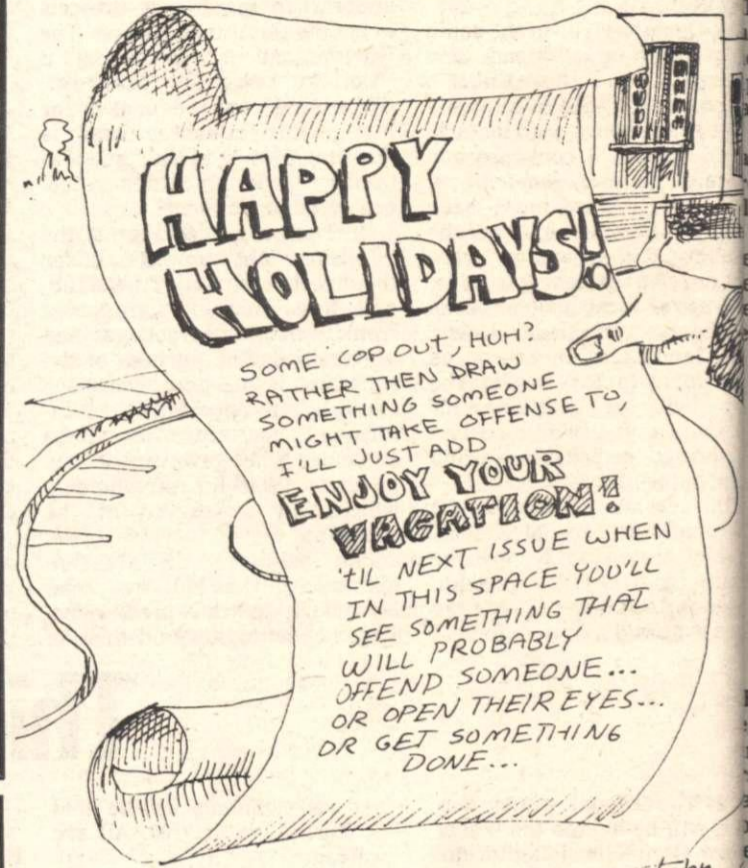 HAPPY
HOLIDAYS!
SOME COP OUT, HUH?
RATHER THEN DRAW
SOMETHING SOMEONE
MIGHT TAKE OFFENSE TO,
I'LL JUST ADD
ENJOY YOUR
VACATION!
'TIL NEXT ISSUE WHEN
IN THIS SPACE YOU'LL
SEE SOMETHING THAT
WILL PROBABLY
OFFEND SOMEONE...
OR OPEN THEIR EYES...
OR GET SOMETHING
DONE...